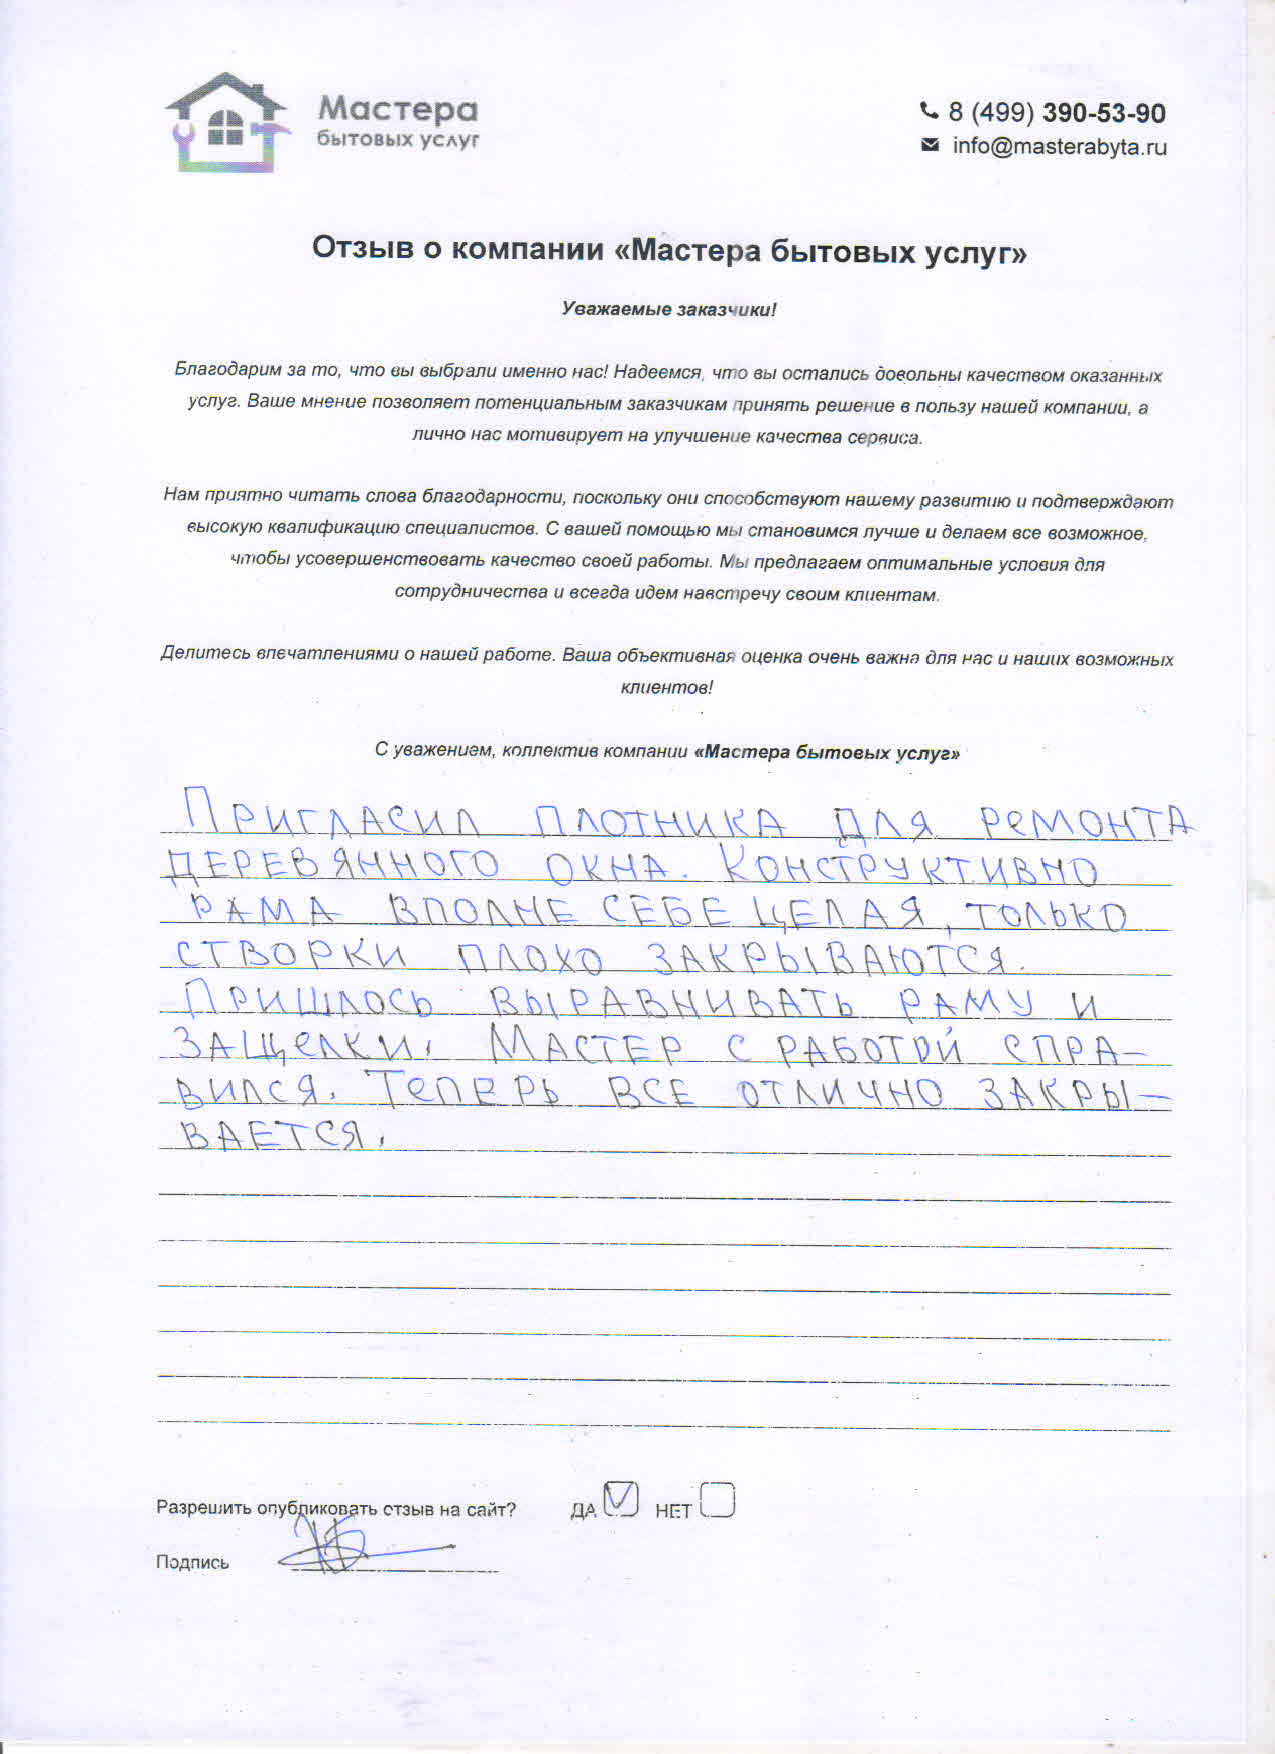 Мастера
бытовых услуг
8 (499) 390-53-90
info@masterabyta.ru
Отзыв о компании «Мастера бытовых услуг»
Уважаемые заказчики!
Благодарим за то, что вы выбрали именно нас! Надеемся, что вы остались довольны качеством оказанных
услуг. Ваше мнение позволяет потенциальным заказчикам принять решение в пользу нашей компании, а
лично нас мотивирует на улучшение качества сервиса.
Нам приятно читать слова благодарности, поскольку они способствуют нашему развитию и подтверждают
высокую квалификацию специалистов. С вашей помощью мы становимся лучше и делаем все возможное,
чтобы усовершенствовать качество своей работы. Мы предлагаем оптимальные условия для
сотрудничества и всегда идем навстречу своим клиентам.
Делитесь впечатлениями о нашей работе. Ваша объективная оценка очень важна для нас и наших возможных
клиентов!
С уважением, коллектив компании «Мастера бытовых услуг»
Пригласил плотника для ремонта
деревянного окна. Конструктивно
рама вполне себе целая, только
створки плохо закрываются.
Пришлось выравнивать раму и
защелки. Мастер с работой спра-
вился. Теперь все отлично закры-
вается.
Разрешить опубликовать отзыв на сайт? ДА НЕТ
Подпись